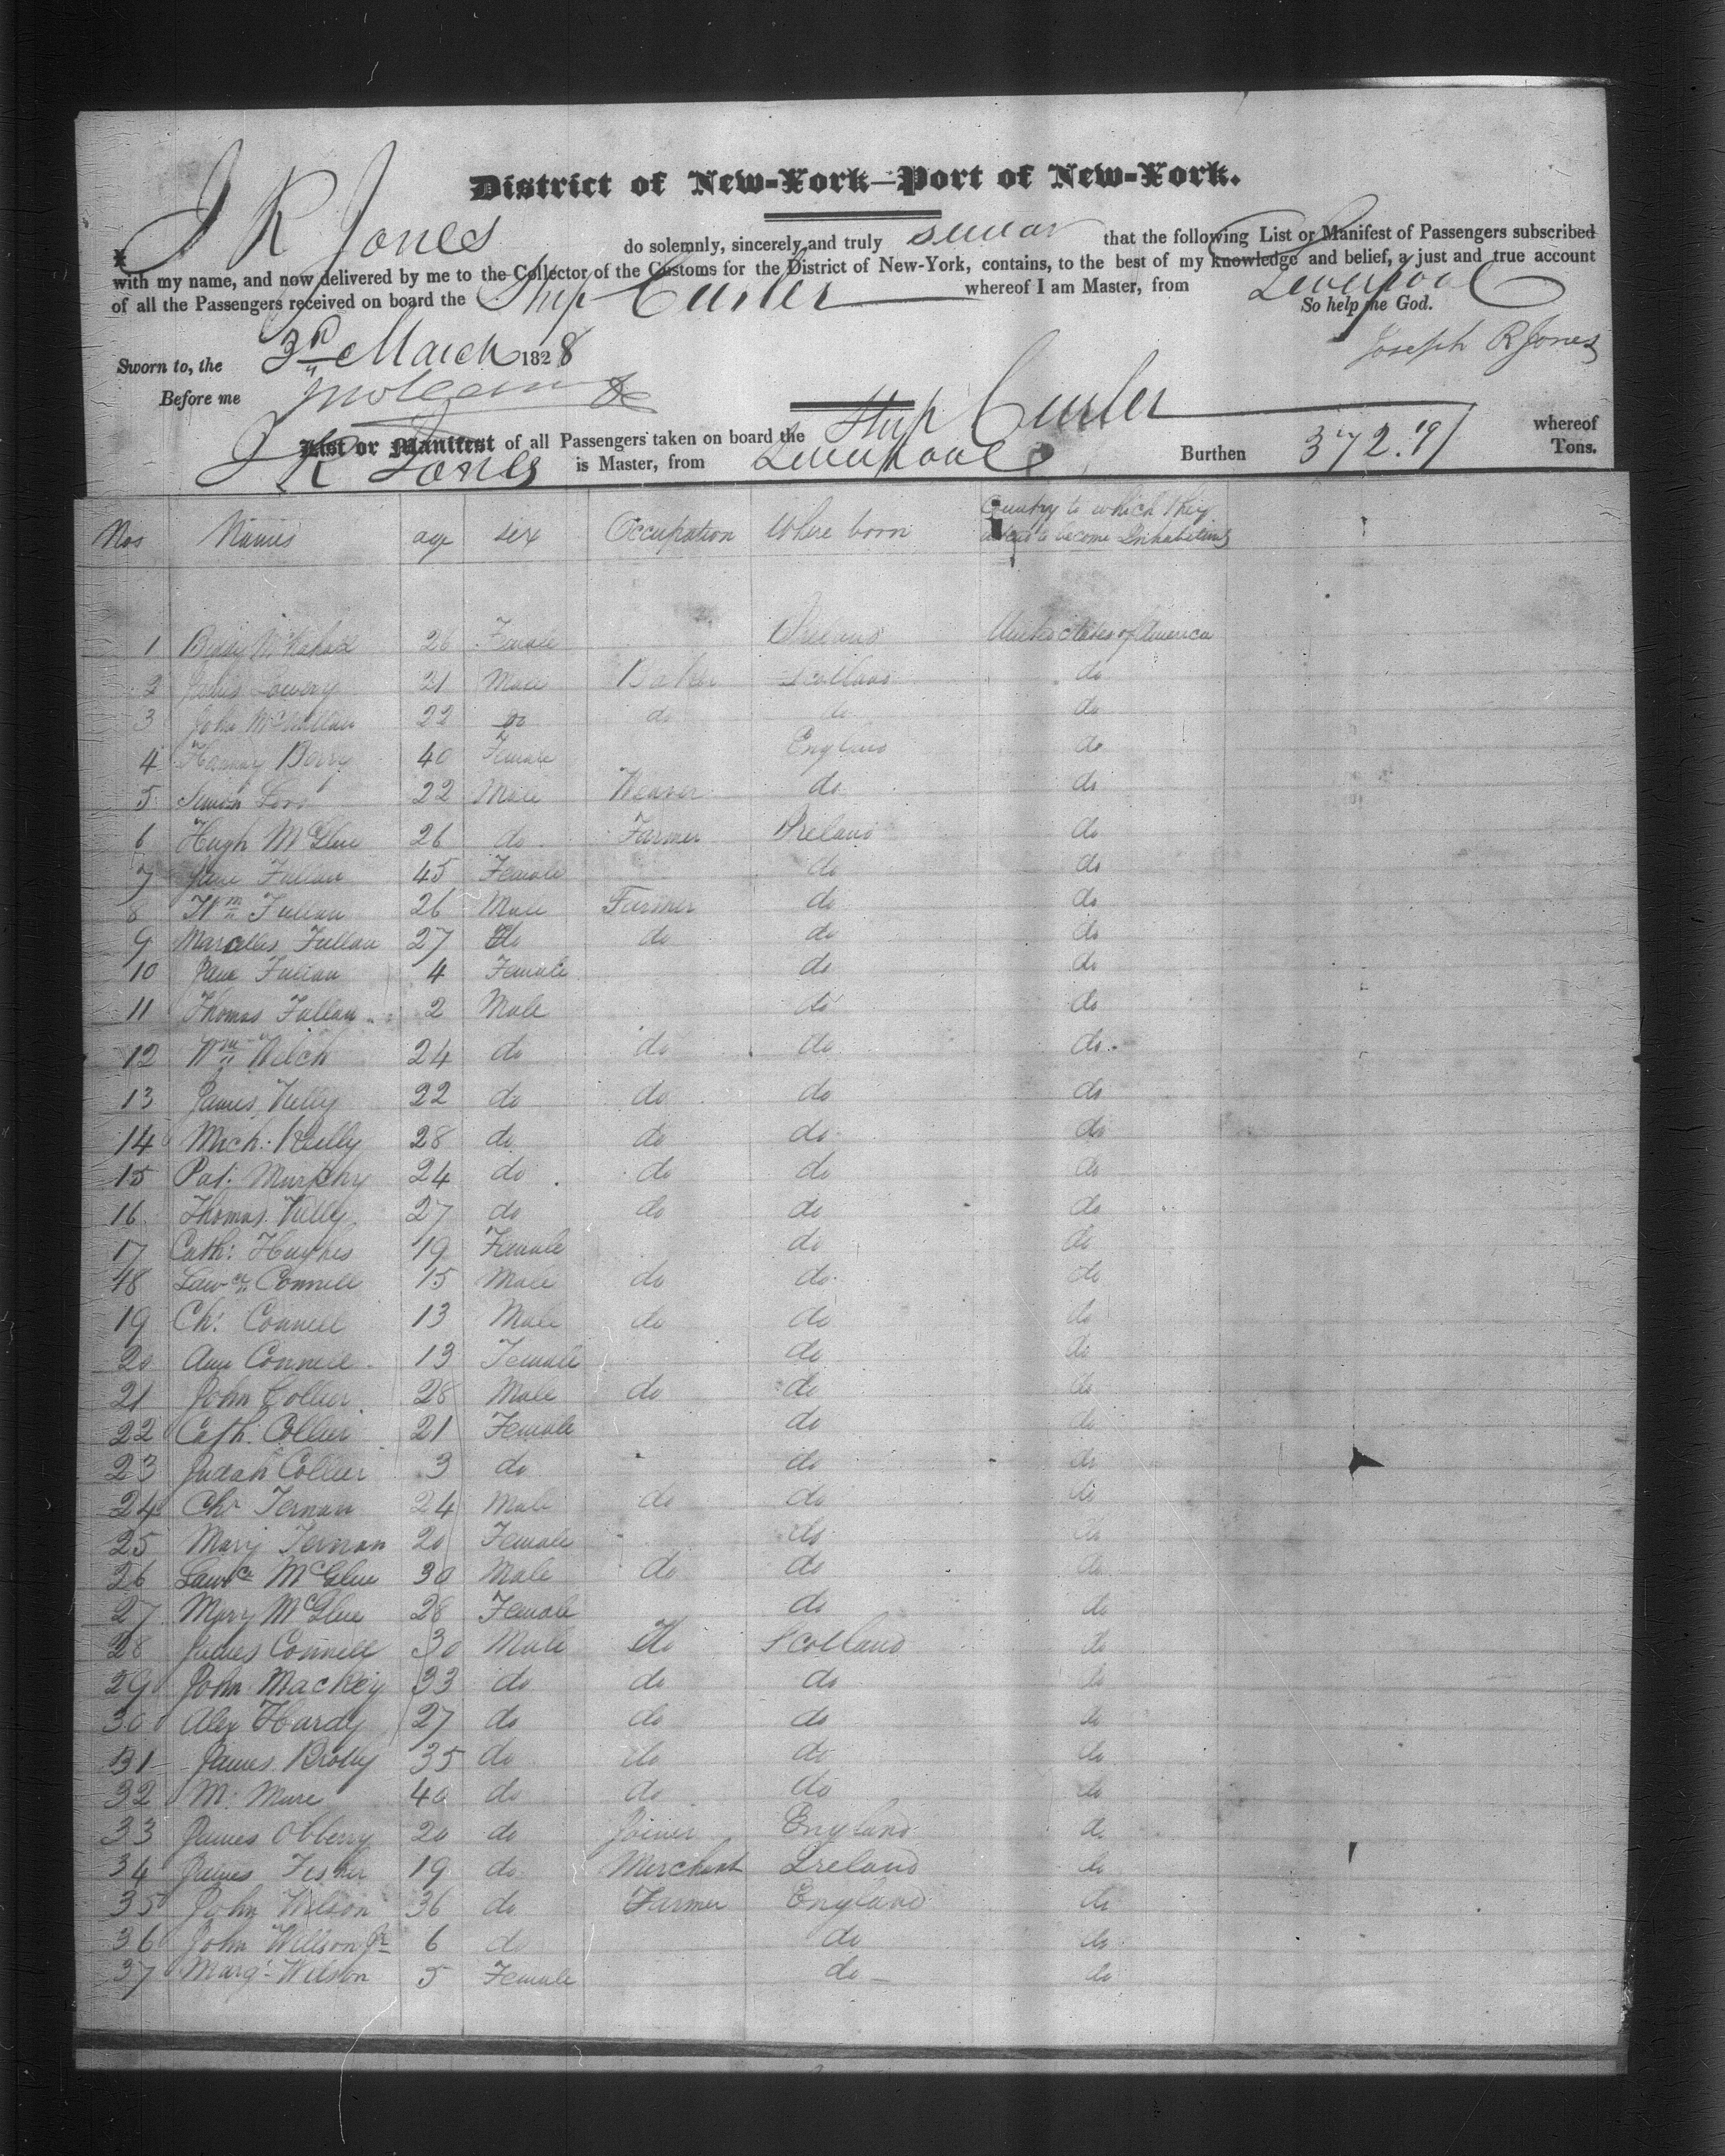 District of New-York—Port of New-York.
I, J R Jones do solemnly, sincerely and truly swear that the following List or Manifest of Passengers subscribed
with my name, and now delivered by me to the Collector of the Customs for the District of New-York, contains, to the best of my knowledge and belief, a just and true account
of all the Passengers received on board the Ship Curler whereof I am Master, from Liverpool
So help me God.
Sworn to, the 3d March 1828 Joseph R Jones
Before me
List or Manifest of all Passengers taken on board the Ship Curler whereof
J R Jones is Master, from Liverpool Burthen 372. 91 Tons.
Nos Names age sex Occupation Where born Country to which they intend to become Inhabitants
1 Betsy 26 Female Ireland United States of America
2 Lowery 21 Male Baker Scotland do
3 John McMullan 22 do do do do
4 Berry 40 Female England do
5 22 Male Weaver do do
6 Hugh McGlue 26 do Farmer Ireland do
7 Jane Fullan 45 Female do do
8 Wm Fullan 26 Male Farmer do do
9 Marcellus Fullan 27 do do do do
10 Jane Fullan 4 Female do do
11 Thomas Fullan 2 Male do do
12 Wm Welch 24 do do do do
13 James Kelly 22 do do do do
14 Mich: Reilly 28 do do do do
15 Pat: Murphy 24 do do do do
16 Thomas Kelly 27 do do do do
17 Cath: Hughes 19 Female do do
18 Lawce Connell 15 Male do do do
19 Chr Connell 13 Male do do do
20 Ann Connell 13 Female do do
21 John Collier 28 Male do do do
22 Cath. Collier 21 Female do do
23 Judah Collier 3 do do do
24 Chr Ternan 24 Male do do do
25 Mary Ternan 20 Female do do
26 Lawce McGlue 30 Male do do do
27 Mary McGlue 28 Female do do
28 James Connell 30 Male do Scotland do
29 John Mackey 33 do do do do
30 Alex Hardy 27 do do do do
31 James 35 do do do do
32 M. Mure 40 do do do do
33 James Obberry 20 do Joiner England do
34 James Fisher 19 do Merchant Ireland do
35 John Wilson 36 do Farmer England do
36 John Willson Jr 6 do do do
37 Margt Wilson 5 Female do do